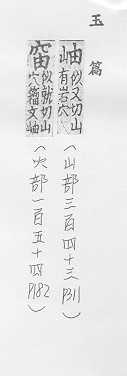 玉篇
岫似又切山有岩穴(山部三百四十三P311)
𥥉似就切山穴籀文岫(穴部一百五十四P182)